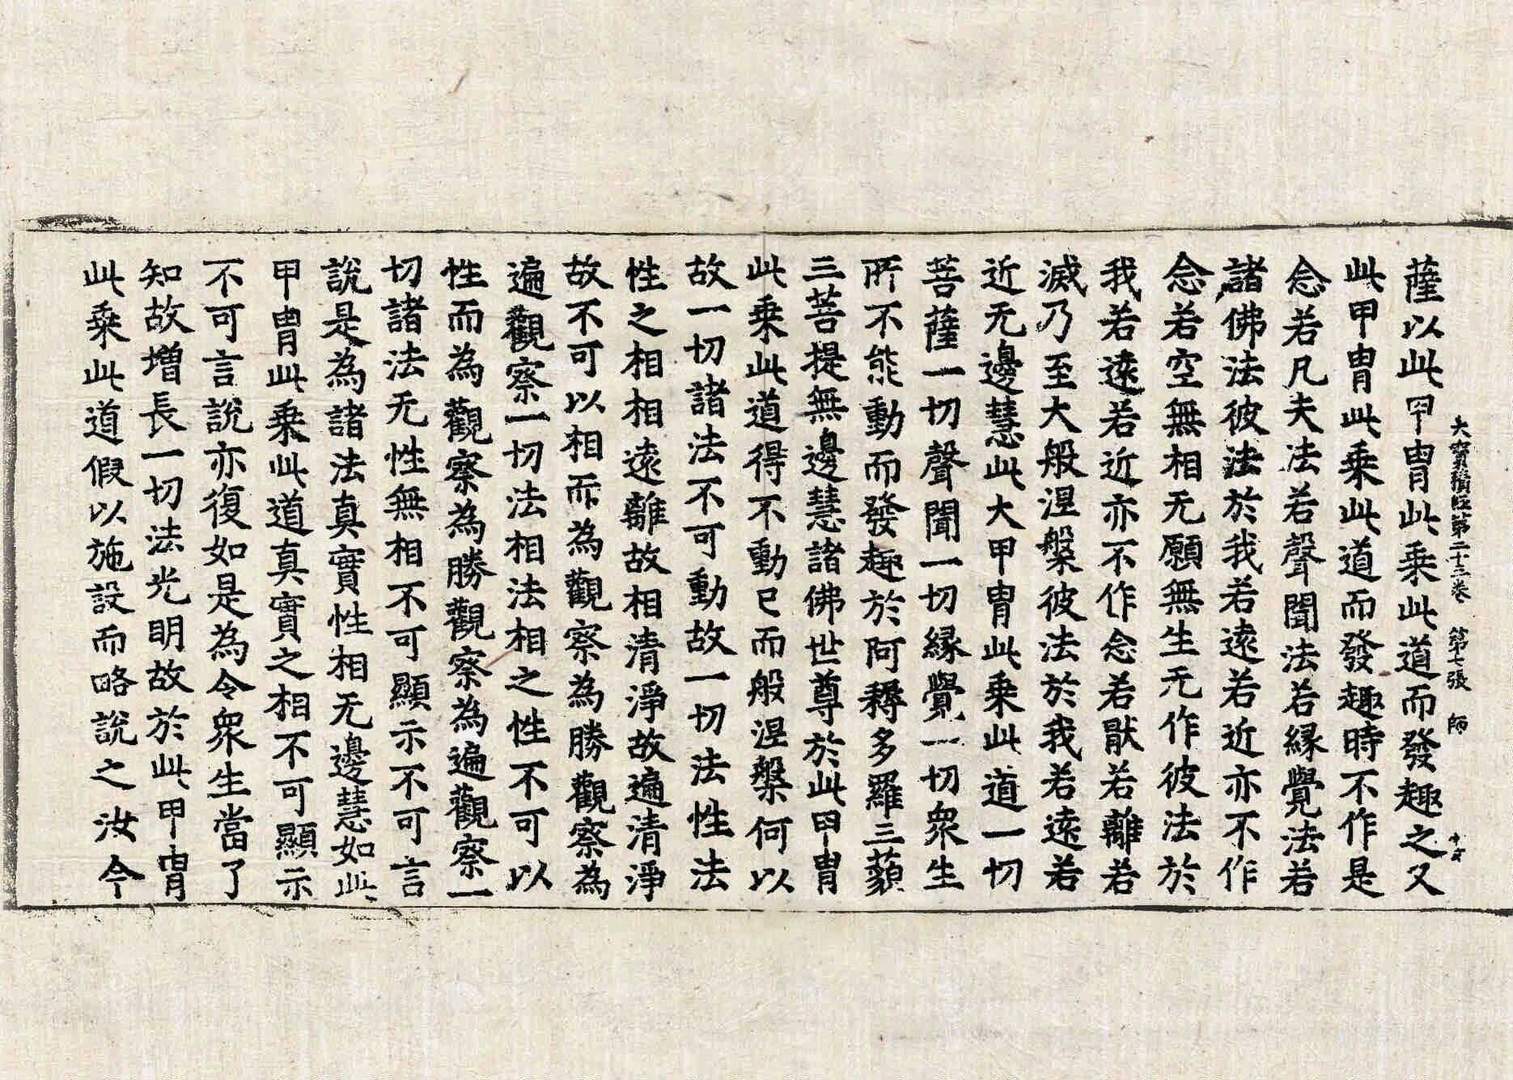 大寶積經第二十三卷　第七張　師
薩以此甲冑此乘此道而發趣之又
此甲冑此乘此道而發趣時不作是
念若凡夫法若聲聞法若縁覺法若
諸佛法彼法於我若遠若近亦不作
念若空無相无願無生无作彼法於
我若遠若近亦不作念若猒若離若
滅乃至大般涅槃彼法於我若遠若
近无邊慧此大甲冑此乘此道一切
菩薩一切聲聞一切縁覺一切衆生
所不能動而發趣於阿耨多羅三藐
三菩提無邊慧諸佛世尊於此甲冑
此乘此道得不動已而般涅槃何以
故一切諸法不可動故一切法性法
性之相相遠離故相清淨故遍清淨
故不可以相而為觀察為勝觀察為
遍觀察一切法相法相之性不可以
性而為觀察為勝觀察為遍觀察一
切諸法无性無相不可顯示不可言
說是為諸法真實性相无邊慧如此
甲冑此乘此道真實之相不可顯示
不可言說亦復如是為令衆生當了
知故增長一切法光明故於此甲冑
此乘此道假以施設而略說之汝今